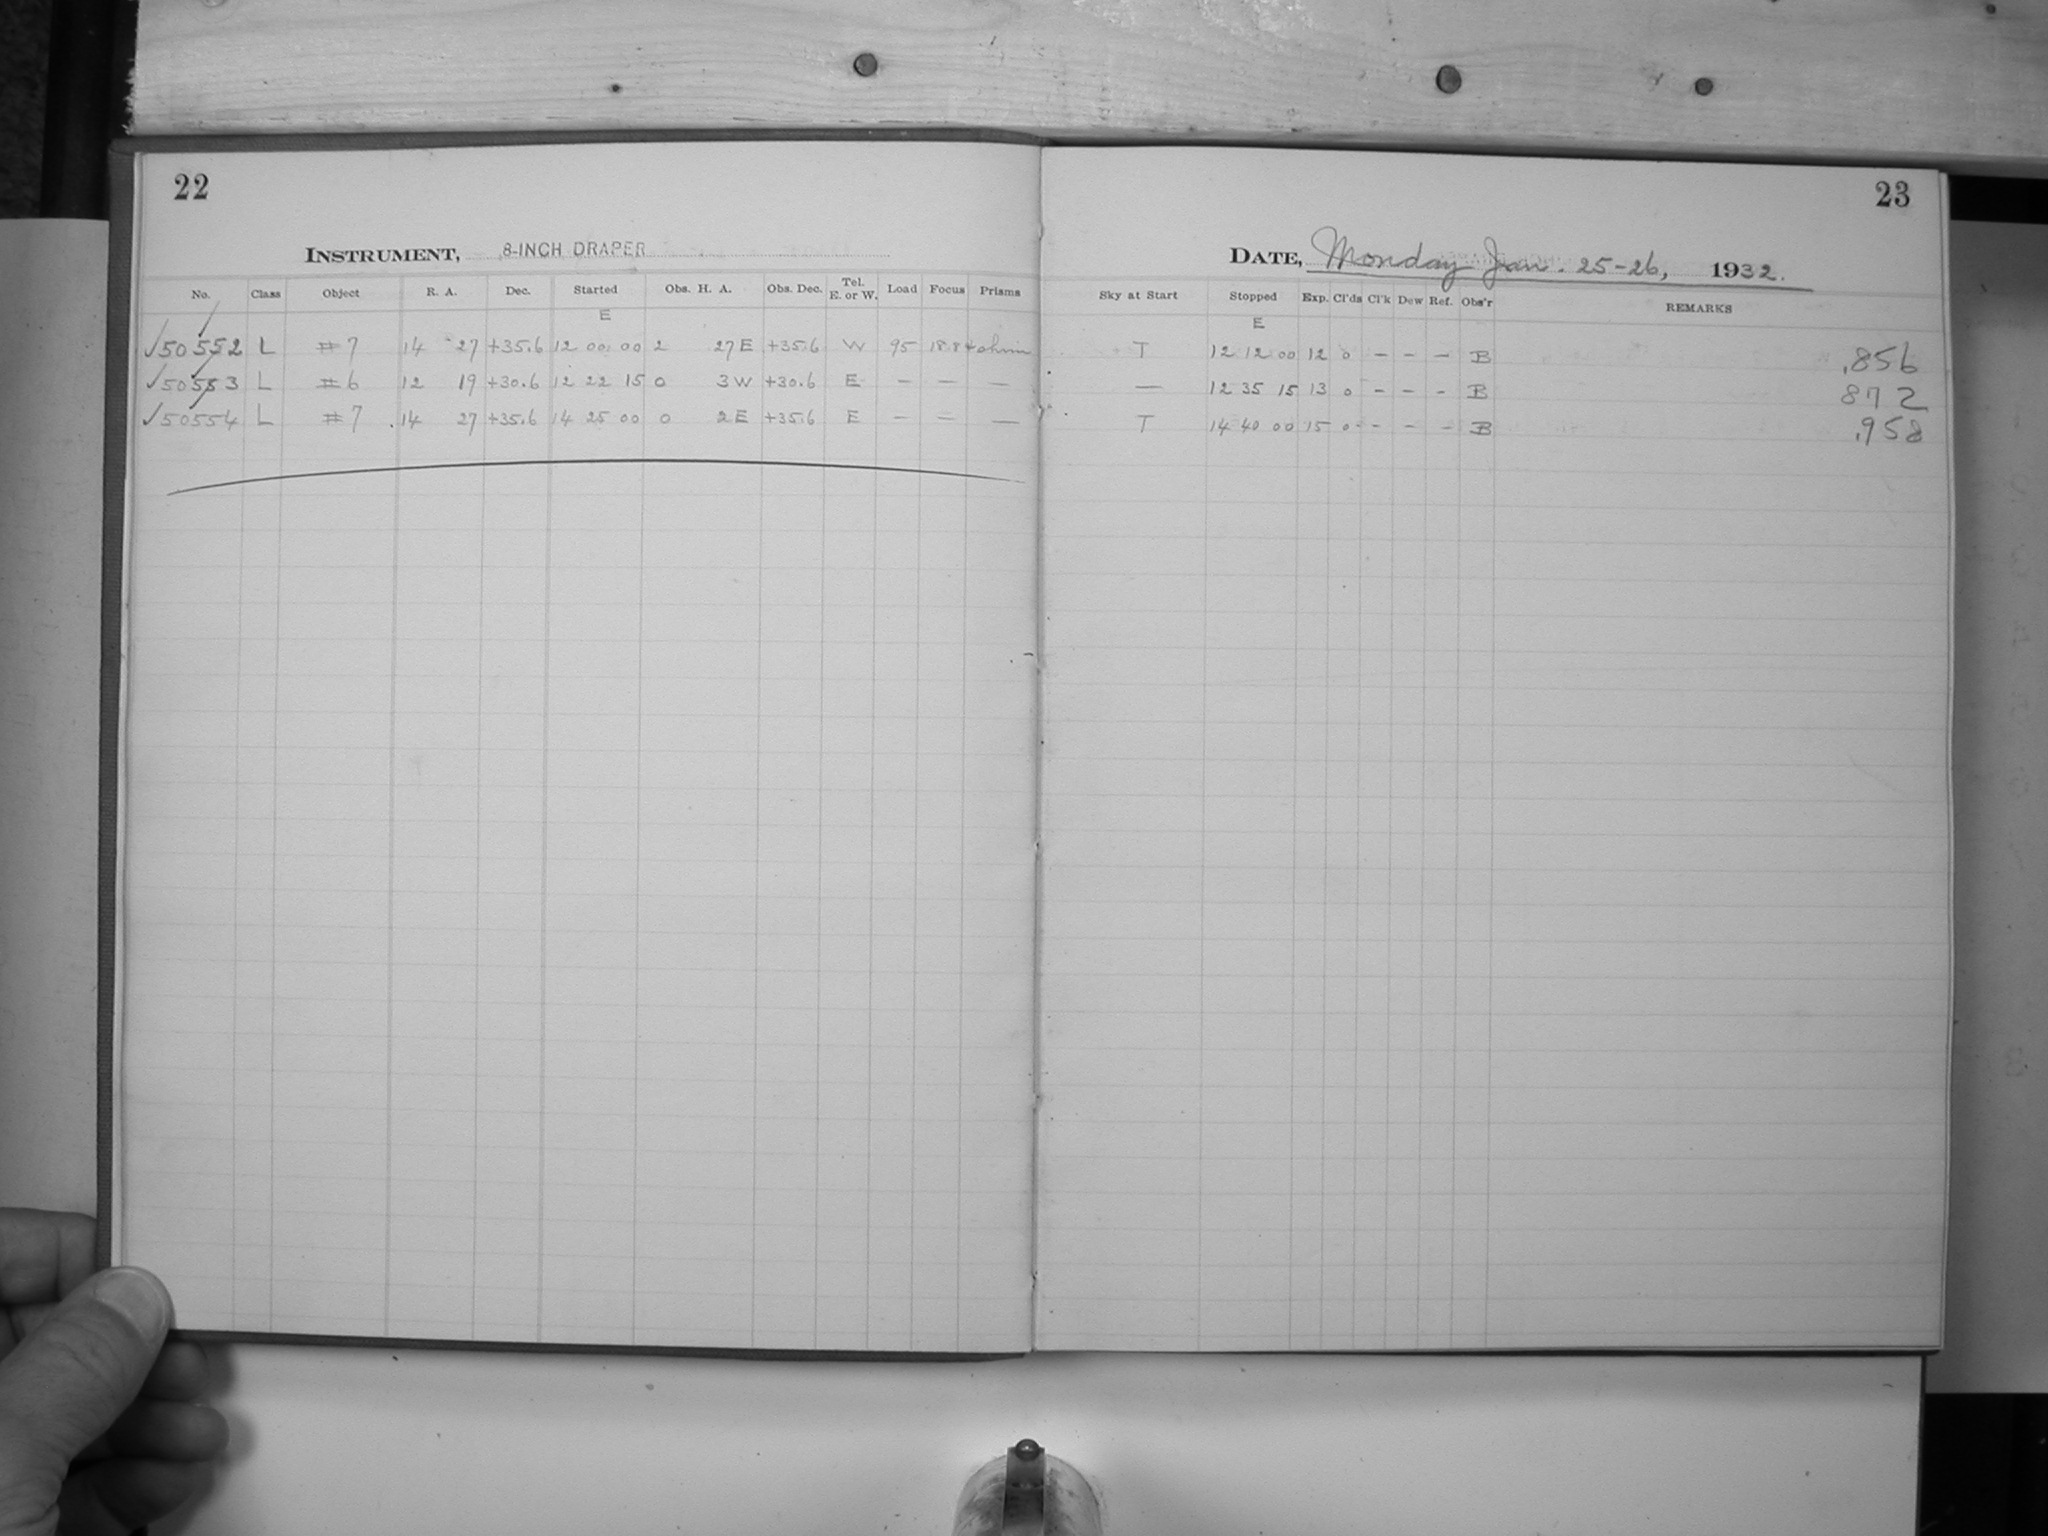 22
INSTRUMENT, 8-INCH DRAPER
No. Class Object R. A. Dec. Started Obs. H. A. Obs. Dec. Tel. E. or W. Load Focus Prisms
E
✓50552 L #7 14 27 +35.6 12 00 00 2 27 E +35.6 W 95 18.84
✓50553 L #6 12 19 +30.6 12 22 15 0 3 W +30.6 E — — —
✓50554 L #7 14 27 +35.6 14 25 00 0 2 E +35.6 E — — —
23
DATE, Monday Jan. 25-26, 1932.
Sky at Start Stopped Exp. Cl'ds Cl'k Dew Ref. Obs'r REMARKS
E
T 12 12 00 12 0 — — — B .856
— 12 35 15 13 0 — — — B 872
T 14 40 00 15 0 — — — B .958